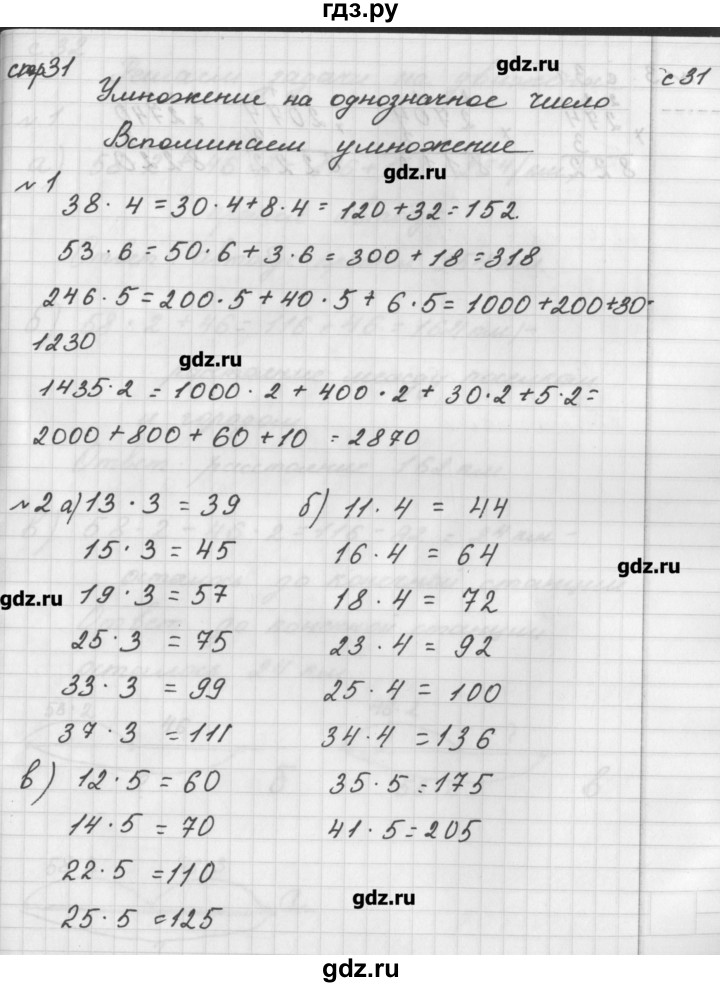 гдз.ру
стр31
с 31
gdz.ru
Умножение на однозначное число
Вспоминаем умножение
gdz.ru
№ 1
38 · 4 = 30 · 4 + 8 · 4 = 120 + 32 = 152.
53 · 6 = 50 · 6 + 3 · 6 = 300 + 18 = 318
246 · 5 = 200 · 5 + 40 · 5 + 6 · 5 = 1000 + 200 + 30 =
1230
gdz.ru
1435 · 2 = 1000 · 2 + 400 · 2 + 30 · 2 + 5 · 2 =
2000 + 800 + 60 + 10 = 2870
№ 2 а) 13 · 3 = 39
15 · 3 = 45
19 · 3 = 57
25 · 3 = 75
33 · 3 = 99
37 · 3 = 111
б) 11 · 4 = 44
16 · 4 = 64
18 · 4 = 72
23 · 4 = 92
25 · 4 = 100
34 · 4 = 136
gdz.ru
gdz.ru
в) 12 · 5 = 60
14 · 5 = 70
22 · 5 = 110
25 · 5 = 125
35 · 5 = 175
41 · 5 = 205
gdz.ru
gdz.ru